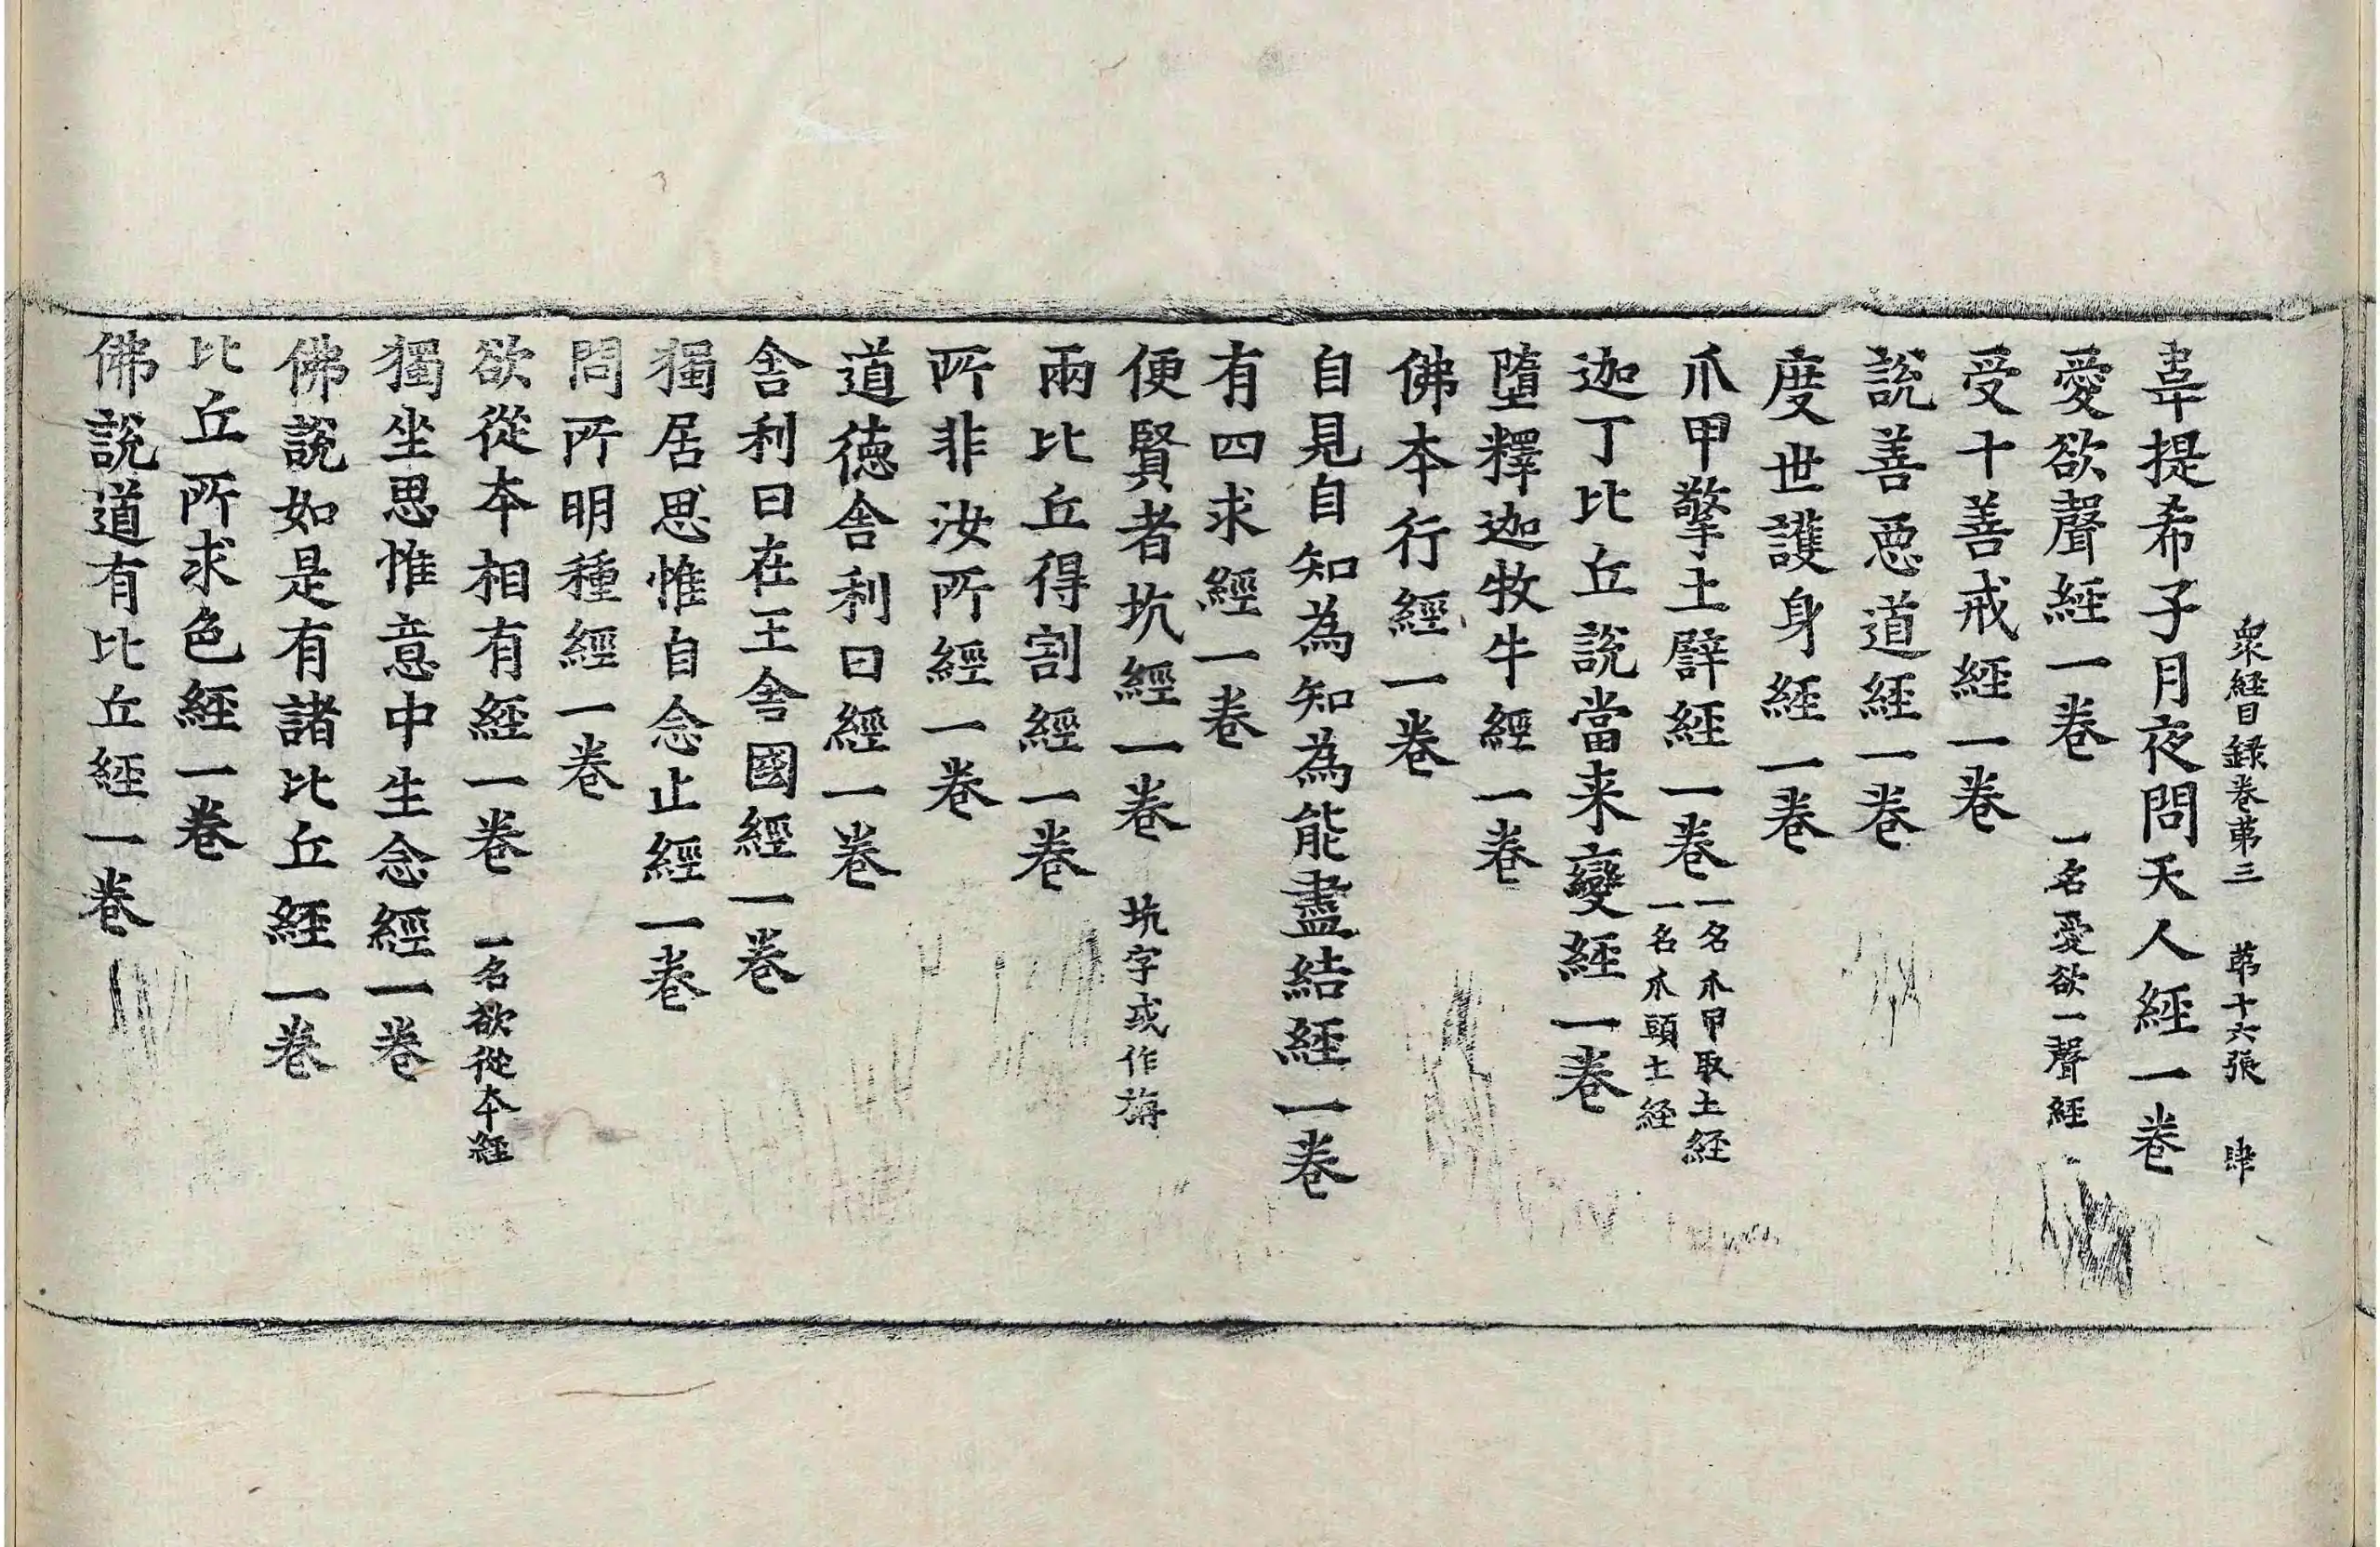 衆經目録卷苐三　苐十六張　肆
韋提希子月夜問天人經一卷
愛欲聲經一卷　一名愛欲一聲經
受十善戒經一卷
說善惡道經一卷
度世護身經一卷
爪甲擎土譬經一卷　一名爪甲取土經　一名爪頭土経
迦丁比丘說當来變經一卷
墮釋迦牧牛經一卷
佛本行經一卷
自見自知為知為能盡結經一卷
有四求經一卷
便賢者坑經一卷　坑字或作旃
兩比丘得割經一卷
所非汝所經一卷
道德舍利曰經一卷
舍利曰在王舍國經一卷
獨居思惟自念止經一卷
問所明種經一卷
欲從本相有經一卷　一名欲從本經
獨坐思惟意中生念經一卷
佛說如是有諸比丘經一卷
比丘所求色經一卷
佛說道有比丘經一卷